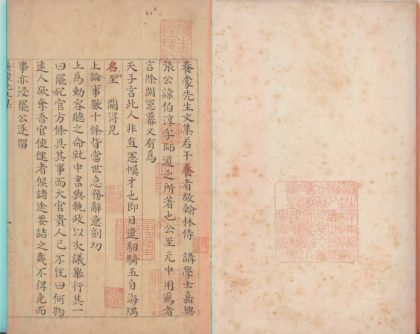 養蒙先生文集若干卷者故翰林侍 講學士嘉興
張公諱伯淳字師道之所著也公至元中用薦者
言除閩憲幕又有為
天子言此人非直憲幙才也即日遣馹騎五自海隅
召至 闕得見
上論事數十條皆當世急務辭意剴切
上為動容聽之命就中書與執政以次議舉行其一
曰罷冗官方條具其事而大官貴人已不悅曰何物
遠人欲奪吾官使健者候諸途要諸之幾不得免而
事亦浸罷公遂留